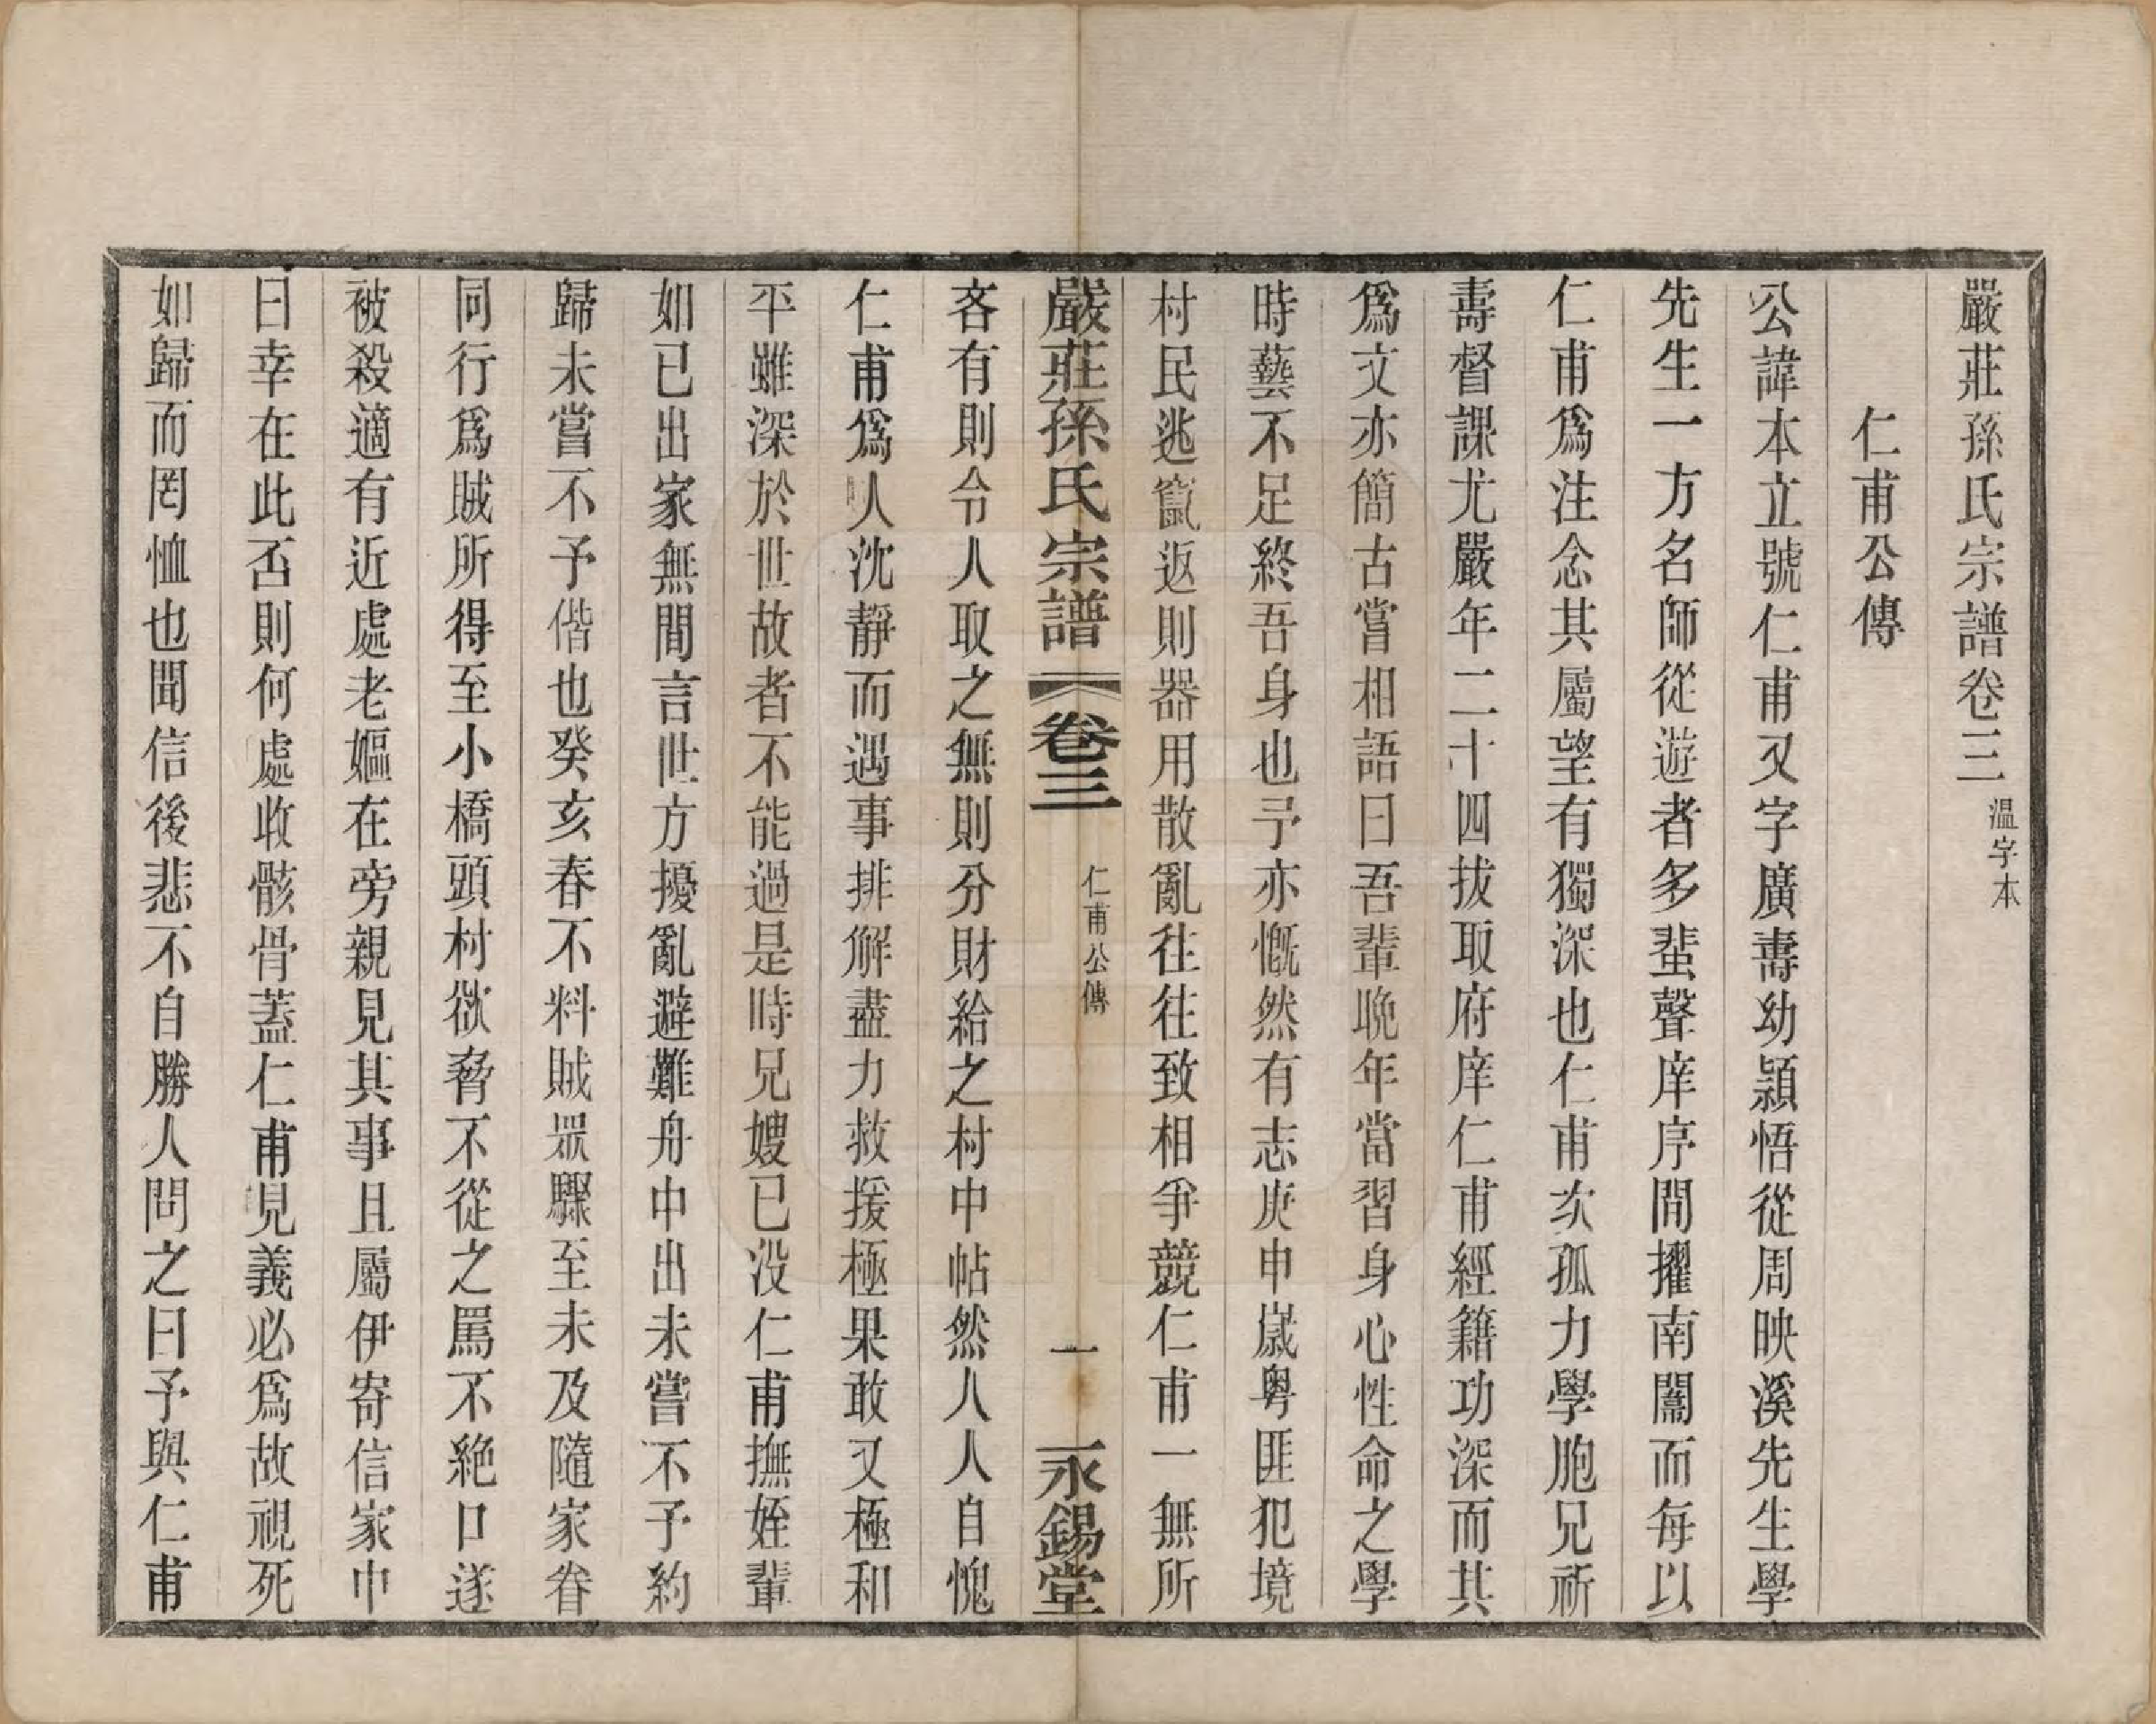 嚴莊孫氏宗譜卷三 溫字本
仁甫公傳
公諱本立號仁甫又字廣壽幼穎悟從周映溪先生學
先生一方名師從遊者多蜚聲庠序間擢南闈而每以
仁甫爲注念其屬望有獨深也仁甫次孤力學胞兄祈
壽督課尤嚴年二十四拔取府庠仁甫經籍功深而其
爲文亦簡古嘗相語曰吾輩晚年當習身心性命之學
時藝不足終吾身也予亦慨然有志庚申嵗粤匪犯境
村民逃竄返則器用散亂往往致相爭競仁甫一無所
嚴莊孫氏宗譜 卷三 仁甫公傳 一 永錫堂
吝有則令人取之無則分財給之村中帖然人人自愧
仁甫爲人沈靜而遇事排解盡力救援極果敢又極和
平雖深於世故者不能過是時兄嫂已没仁甫撫姪輩
如已出家無間言世方擾亂避難舟中出未嘗不予約
歸未嘗不予偕也癸亥春不料賊眾驟至未及隨家眷
同行爲賊所得至小橋頭村欲脅不從之罵不絕口遂
被殺適有近處老嫗在旁親見其事且屬伊寄信家中
曰幸在此否則何處收骸骨蓋仁甫見義必爲故視死
如歸而罔恤也聞信後悲不自勝人問之曰予與仁甫